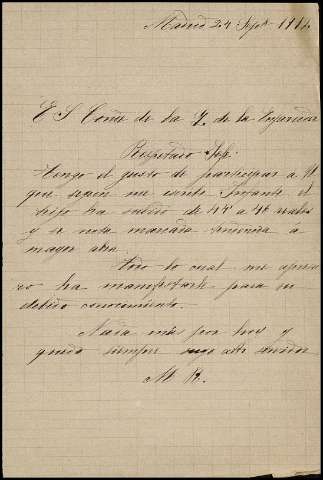 Madrid 24 Sept.
E S Conde de la de la
Respetado Sr:
Tengo el gusto de participar a V
que segun me escribe Infante el
trigo ha subido de 44 a 46 reales
y se nota marcada tendencia a
mayor alza.
Todo lo cual me apresu
ro ha manifestarle para su
debido conocimiento.
Nada más por hoy y
queda siempre suyo atto servidor
M R.